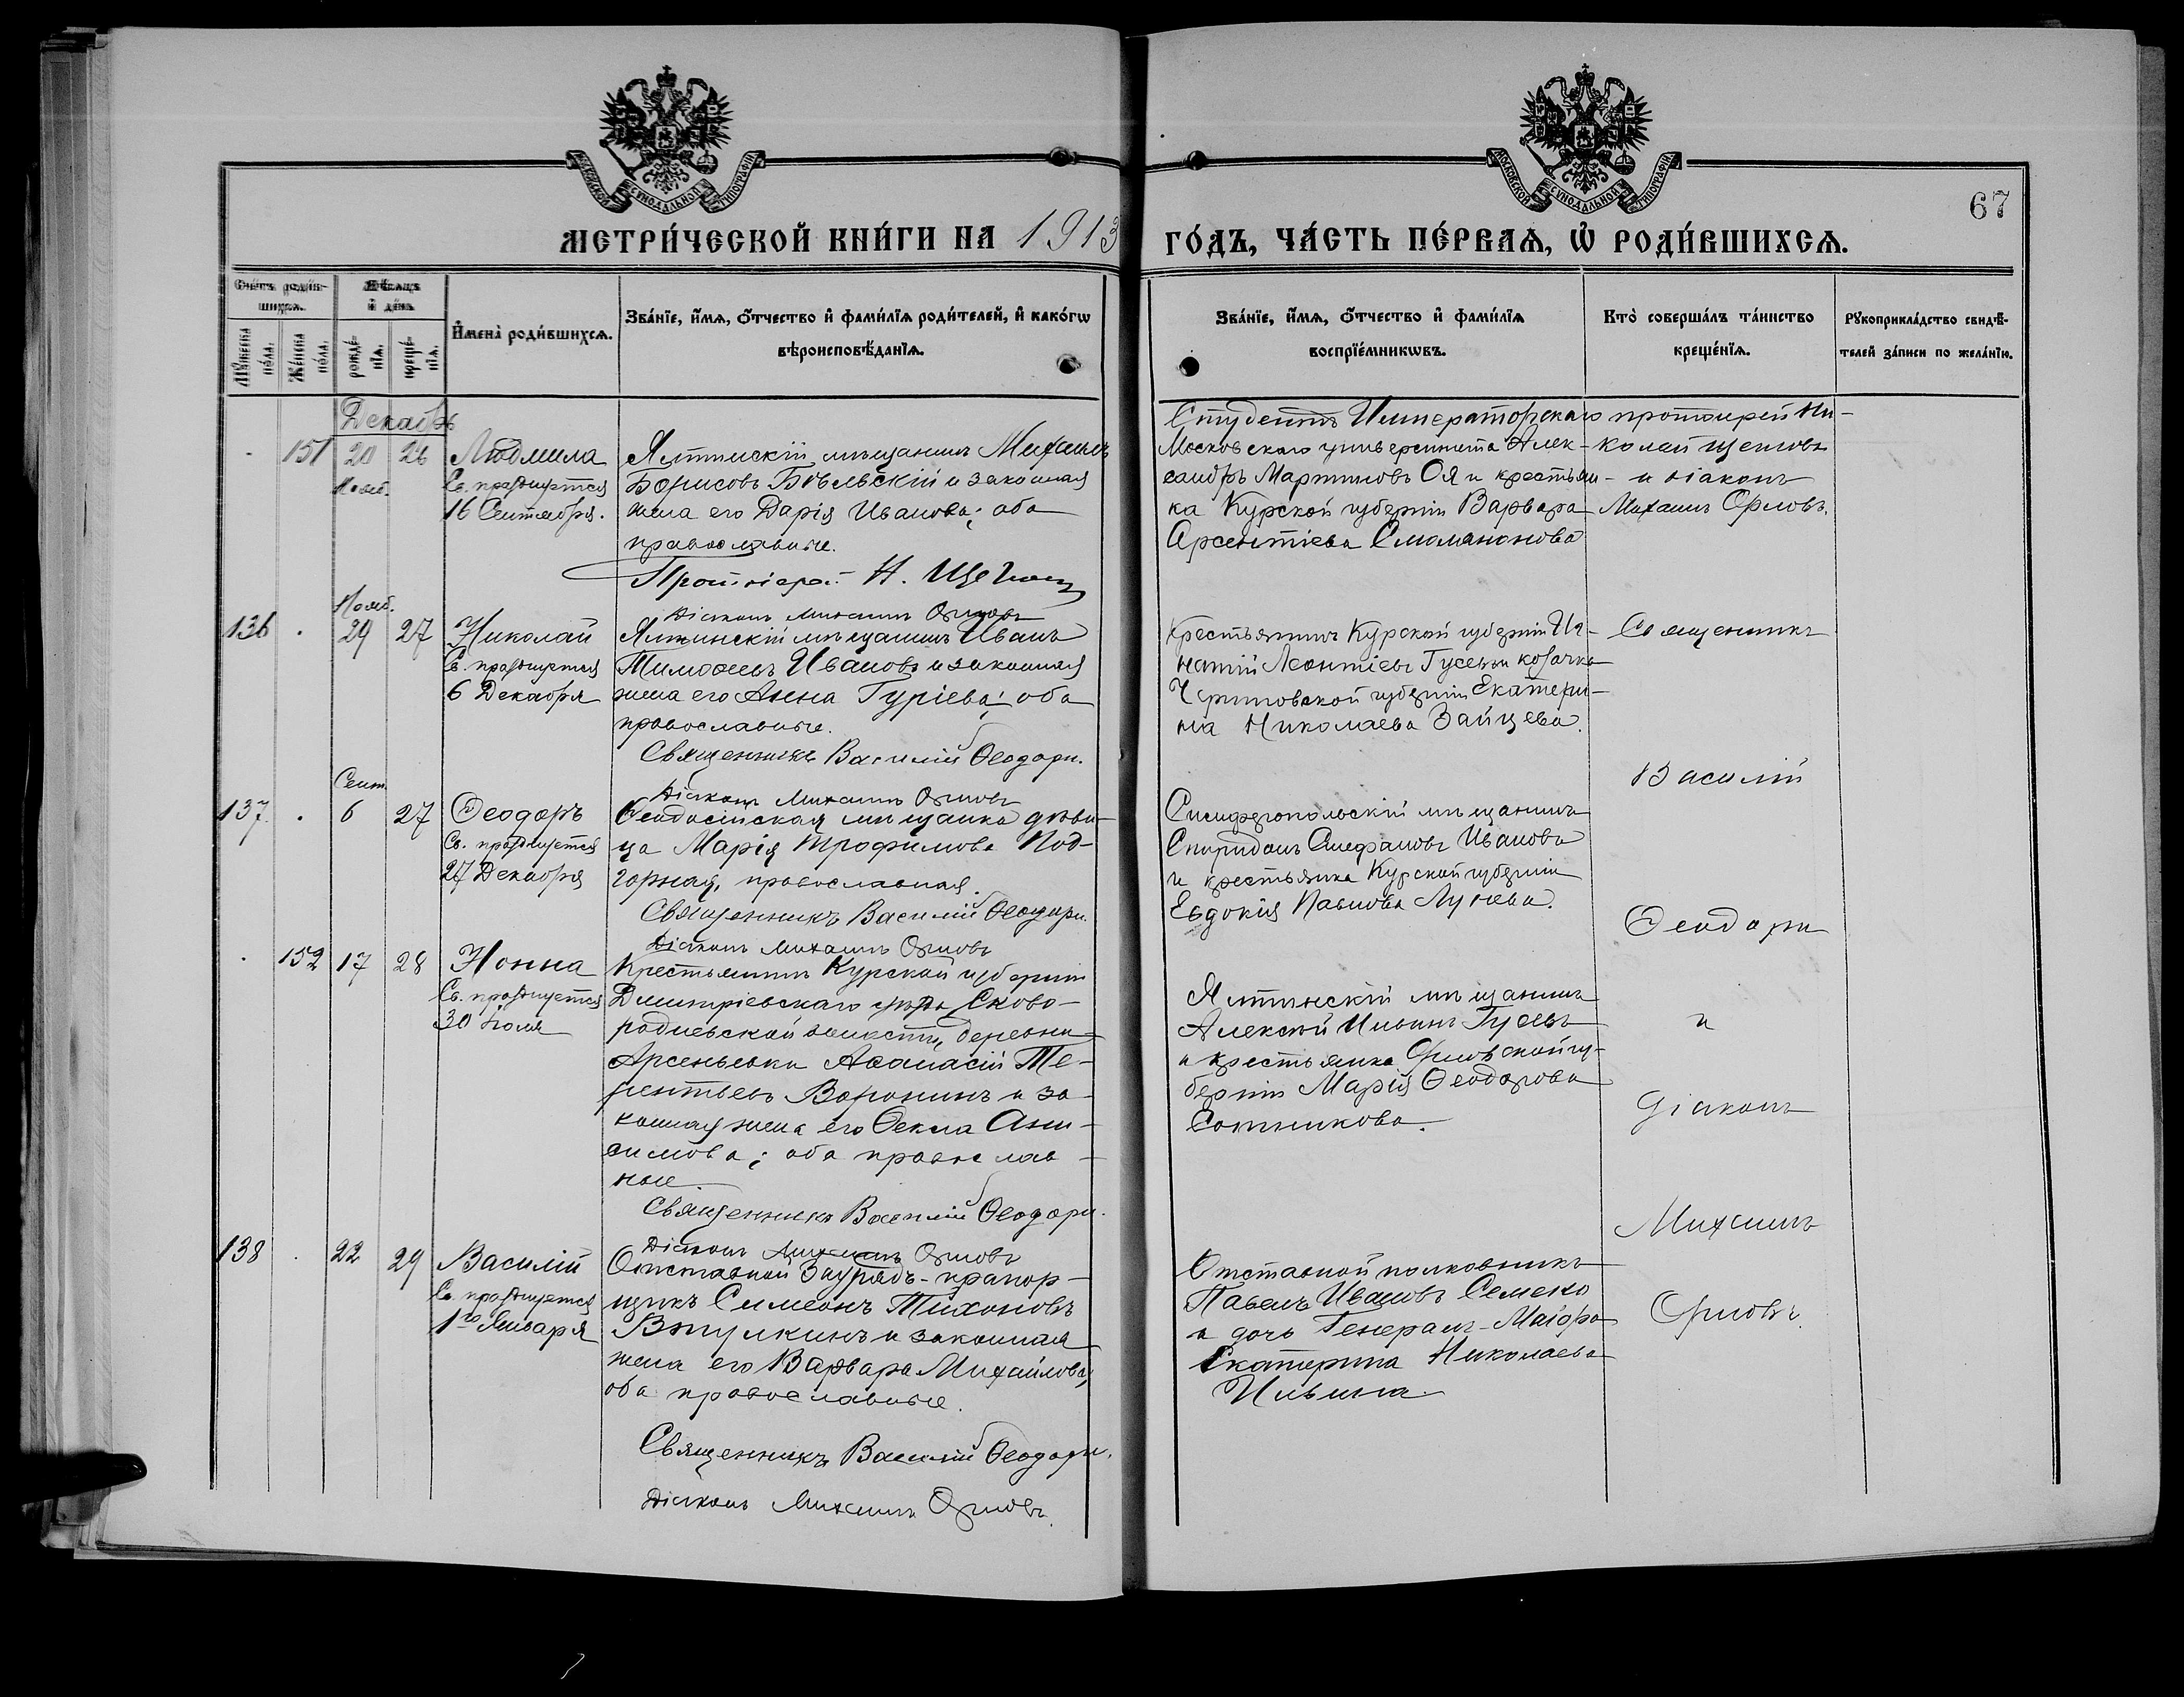 МОСКОВСКОЙ СУНОДАЛЬНОЙ ТИПОГРАФІИ
МОСКОВСКОЙ СУНОДАЛЬНОЙ ТИПОГРАФІИ
67
МЕТРИ́ЧЕСКОЙ КНИ́ГИ НА 1913 ГО́ДЪ, ЧА́СТЬ ПЕ́РВАѦ, Ѡ҆ РОДИ́ВШИХСѦ.
Сче́тъ роди́в-
шихсѧ.
Мꙋ́жеска по́ла.
Же́нска по́ла.
Мѣ́сѧцъ
и҆ де́нь
рожде́-
нїѧ.
креще́-
нїѧ.
И҆мена̀ роди́вшихсѧ.
Зва́нїе, и҆́мѧ, ѻ҆́тчество и҆ фами́лїѧ роди́телей, и҆ како́гѡ
вѣроисповѣ́данїѧ.
Зва́нїе, и҆́мѧ, ѻ҆́тчество и҆ фами́лїѧ
воспрїе́мникѡвъ.
Кто̀ соверша́лъ та́инство
креще́нїѧ.
Рꙋкоприкла́дство свидѣ́-
телей за́писи по жела́нїю.
Декабрь
151 20 26 Людмила
Нояб.
Св. празднуется
16 Сентября.
Ялтинскій мѣщанинъ Михаилъ
Борисовъ Бѣльскій и законная
жена его Дарія Иванова; оба
православные.
Протоіерей Н. Щегловъ
Діаконъ Михаилъ Орловъ
Студентъ Императорскаго
Московскаго университета Алек-
сандръ Мартиновъ Оя и крестьян-
ка Курской губерніи Варвара
Арсентіева
протоіерей Ни-
колай Щегловъ
и діаконъ
Михаилъ Орловъ.
Нояб.
136 29 27 Николай
Св. празднуется
6 Декабря
Ялтинскій мѣщанинъ Иванъ
Тимоѳеевъ Ивановъ и законная
жена его Анна Гуріева; оба
православные.
Священникъ Василій Ѳеодори.
Діаконъ Михаилъ Орловъ
Крестьянинъ Курской губерніи Иг-
натій Леонтіевъ Гусевъ и козачка
Черниговской губерніи Екатери-
на Николаева Зайцева.
Священникъ
Василій
Ѳеодори
и
Діаконъ
Михаилъ
Орловъ.
Сент.
137. 6 27 Ѳеодоръ
Св. празднуется
27 Декабря
Ѳеодосійская мѣщанка дѣви-
ца Марія Трофимова Под-
горная, православная.
Священникъ Василій Ѳеодори.
Діаконъ Михаилъ Орловъ
Симферопольскій мѣщанинъ
Спиридонъ Стефановъ Ивановъ
и крестьянка Курской губерніи
Евдокія Павлова Лунева.
152 17 28 Нонна
Св. празднуется
30 Іюля
Крестьянинъ Курской губерніи
Дмитріевскаго уѣзда, Сково-
родневской волости, деревни
Арсеньевки Аѳанасій Те-
рентьевъ Воронинъ и за-
конная жена его Ѳекла Ани-
симова; оба православ-
ные
Священникъ Василій Ѳеодори.
Діаконъ Михаилъ Орловъ
Ялтинскій мѣщанинъ
Алексѣй Ильинъ Гусевъ
и крестьянка Орловской гу-
берніи Марія Ѳеодорова
Сотникова.
138 22 29 Василій
Св. празднуется
1го Января
Отставной Заурядъ-прапор-
щикъ Симеонъ Тихоновъ
Втулкинъ и законная
жена его Варвара Михайлова;
оба православные.
Священникъ Василій Ѳеодори.
Діаконъ Михаилъ Орловъ.
Отставной полковникъ
Павелъ Ивановъ Семеко
и дочь Генералъ-Маіора
Екатерина Николаева
Ильина.